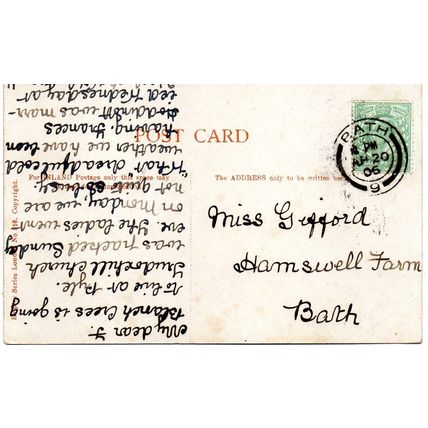 POST CARD
For INLAND Postage only this space may
The ADDRESS only to be written here
BATH
PM
AP 20
06
9
Miss Gifford
Hamswell Farm
Bath
My dear F.
Blanch Crees is going
to live at Pyle.
Church
was packed Sunday
eve. The ladies went
on Monday, we are
not quite so busy.
What dreadful cold
weather we have been
having. Frances
was marr-
ied Wednesday at
Series Copyright.